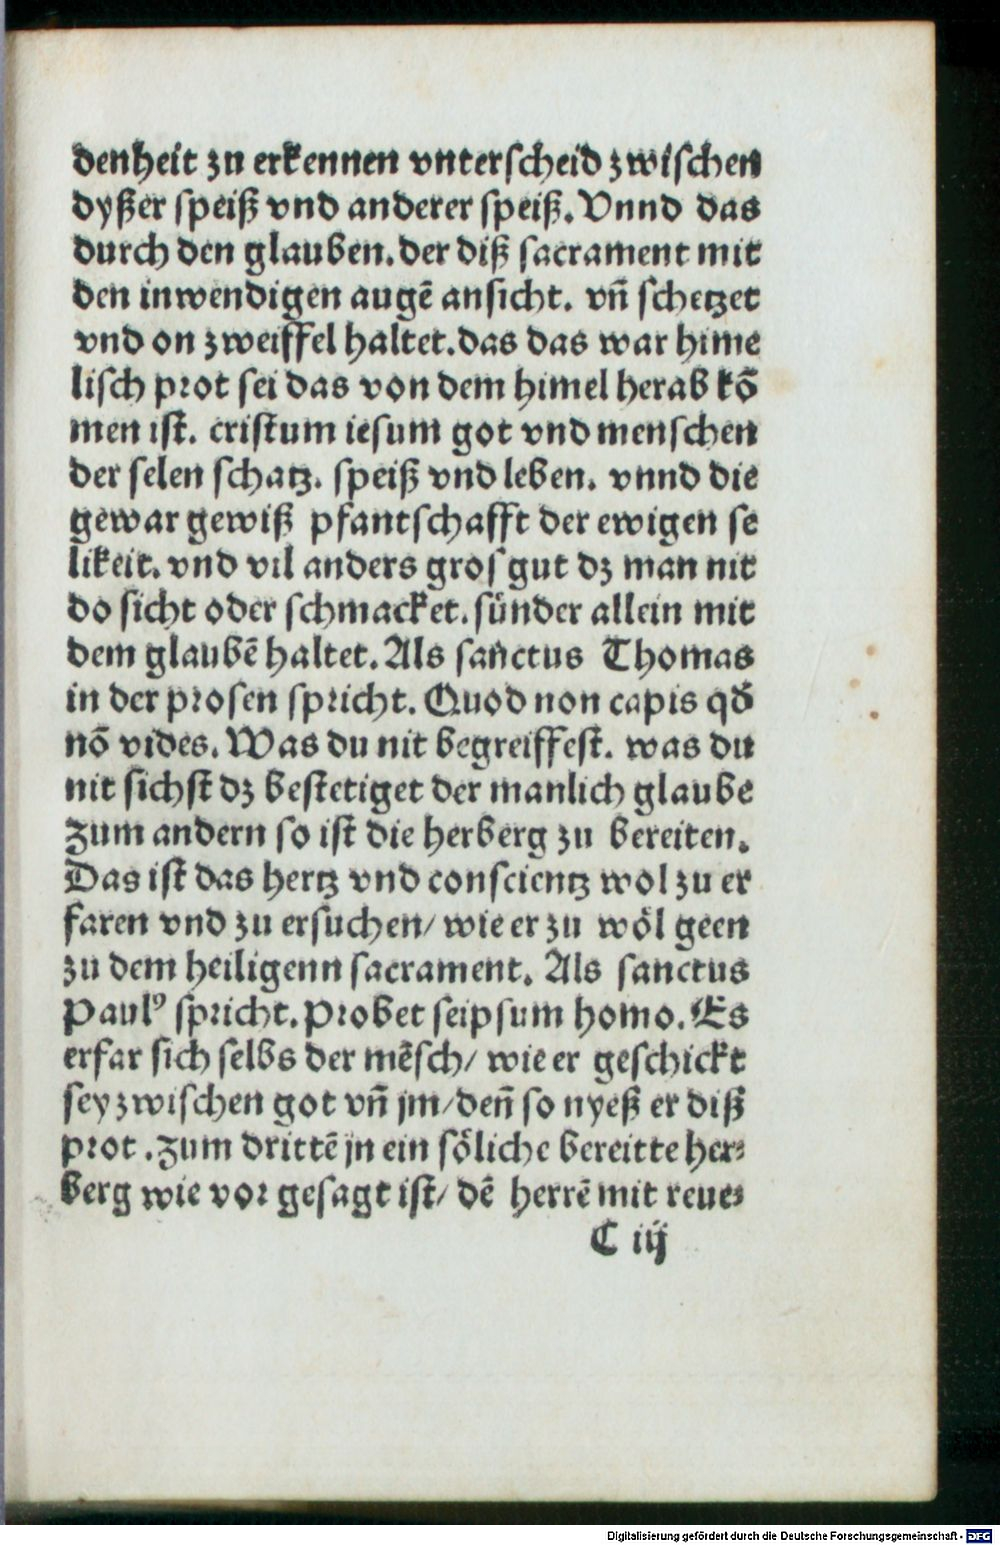 denheit zu erkennen vnterscheid zwischen
dyßer speiß vnd anderer speiß. Vnnd das
durch den glauben. der diß sacrament mit
den inwendigen augē ansicht. vñ schetzet
vnd on zweiffel haltet. das das war hime
lisch prot sei das von dem himel herab kō
men ist. cristum iesum got vnd menschen
der selen schatz. speiß vnd leben. vnnd die
gewar gewiß pfantschafft der ewigen se
likeit. vnd vil anders gros gut dz man nit
do sicht oder schmacket. sünder allein mit
dem glaubē haltet. Als sanctus Thomas
in der prosen spricht. Quod non capis qđ
nō vides. Was du nit begreiffest. was du
nit sichst dz bestetiget der manlich glaube
Zum andern so ist die herberg zu bereiten.
Das ist das hertz vnd conscientz wol zu er
faren vnd zu ersuchen/ wie er zu wöl geen
zu dem heiligenn sacrament. Als sanctus
Paulꝰ spricht. Probet seipsum homo. Es
erfar sich selbs der mēsch/ wie er geschickt
sey zwischen got vñ jm/ deñ so nyeß er diß
prot. Zum drittē jn ein söliche bereitte her⸗
berg wie vor gesagt ist/ dē herrē mit reue⸗
C iij
Digitalisierung gefördert durch die Deutsche Forschungsgemeinschaft - DFG